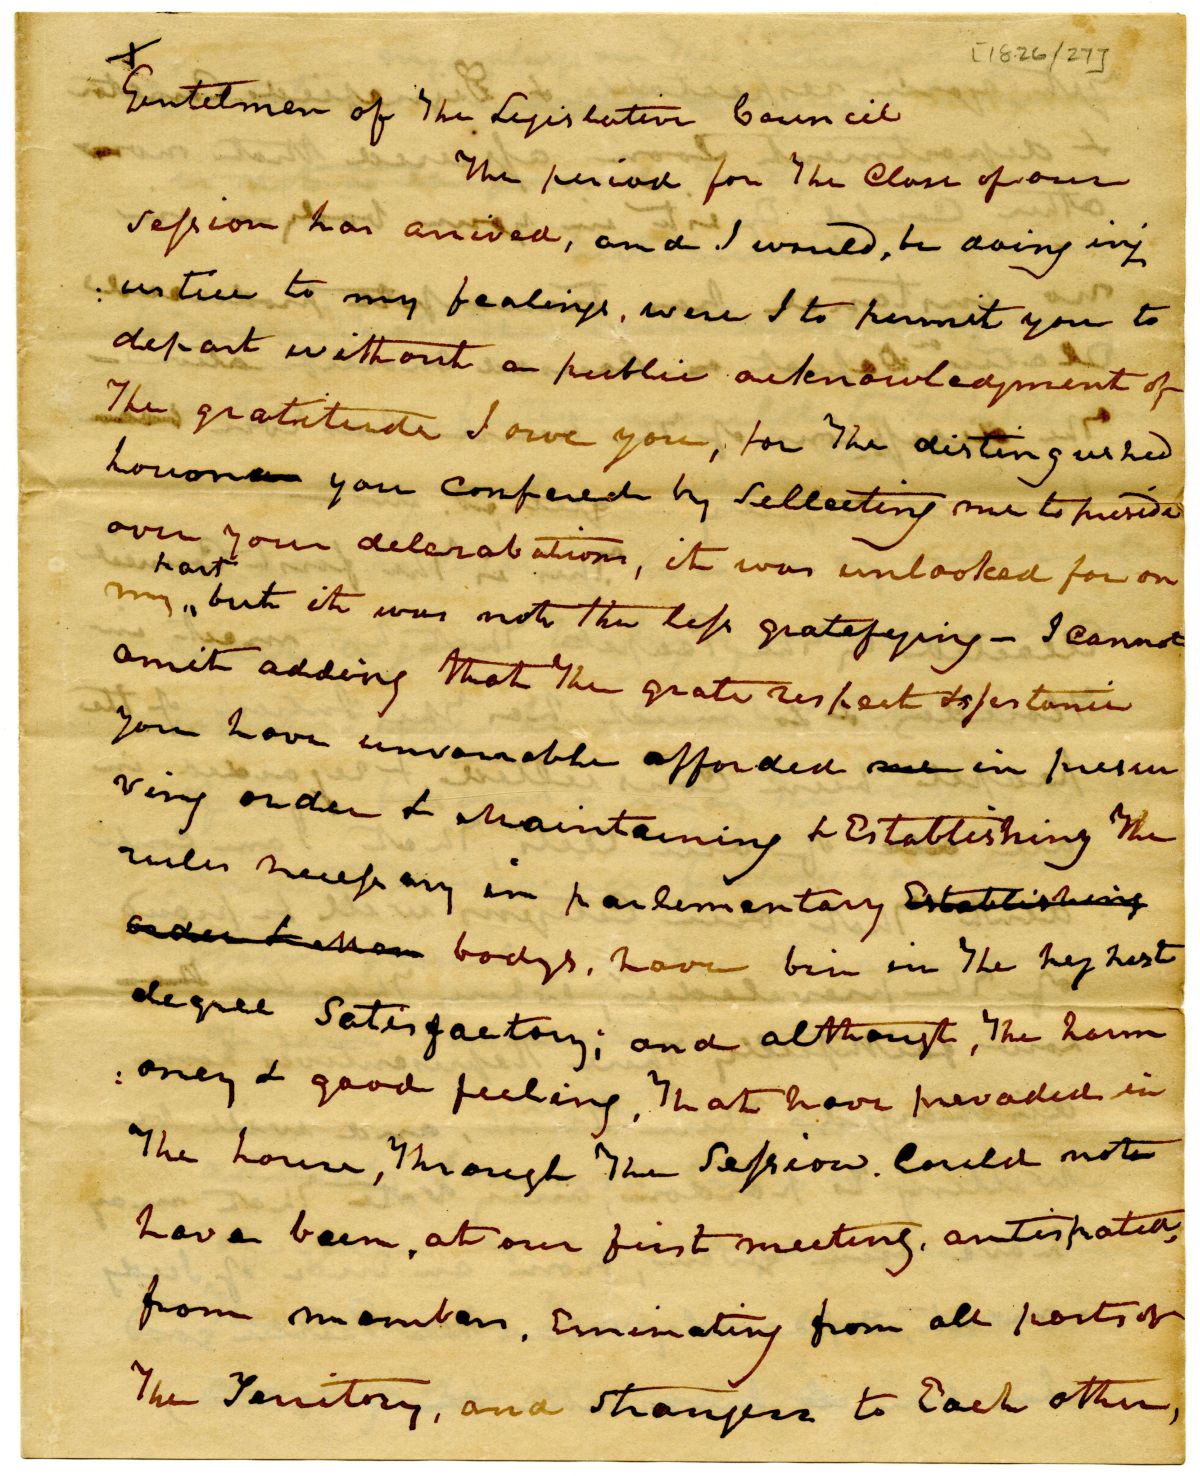 [1826/27]
x
Gentelmen of The Legislative Council
The period for The Close of our
Session has arived, and I would, be doing inj
:ustice to my fealings, were I to permit you to
depart without a public acknowledgment of
The gratitude I owe you, for The distinguished
honor you confered by Sellecting me to preside
over your delerabations, it was unlooked for on
my part, but it was not the less gratefying – I cannot
omit adding that The grate respect &
you have unvariable afforded me in preser
ving order & Maintaining & Establishing The
rules necessary in parlementary Establishing
order & Man bodys, have bin in The heghest
degree Satisfactory; and although, The harm
:oney & good feeling, That have prevaded in
The house, Through The Session. Could not
have been, at our first meeting, antispated,
from members, Eminating from all parts of
The Territory, and Strangers to Each other,